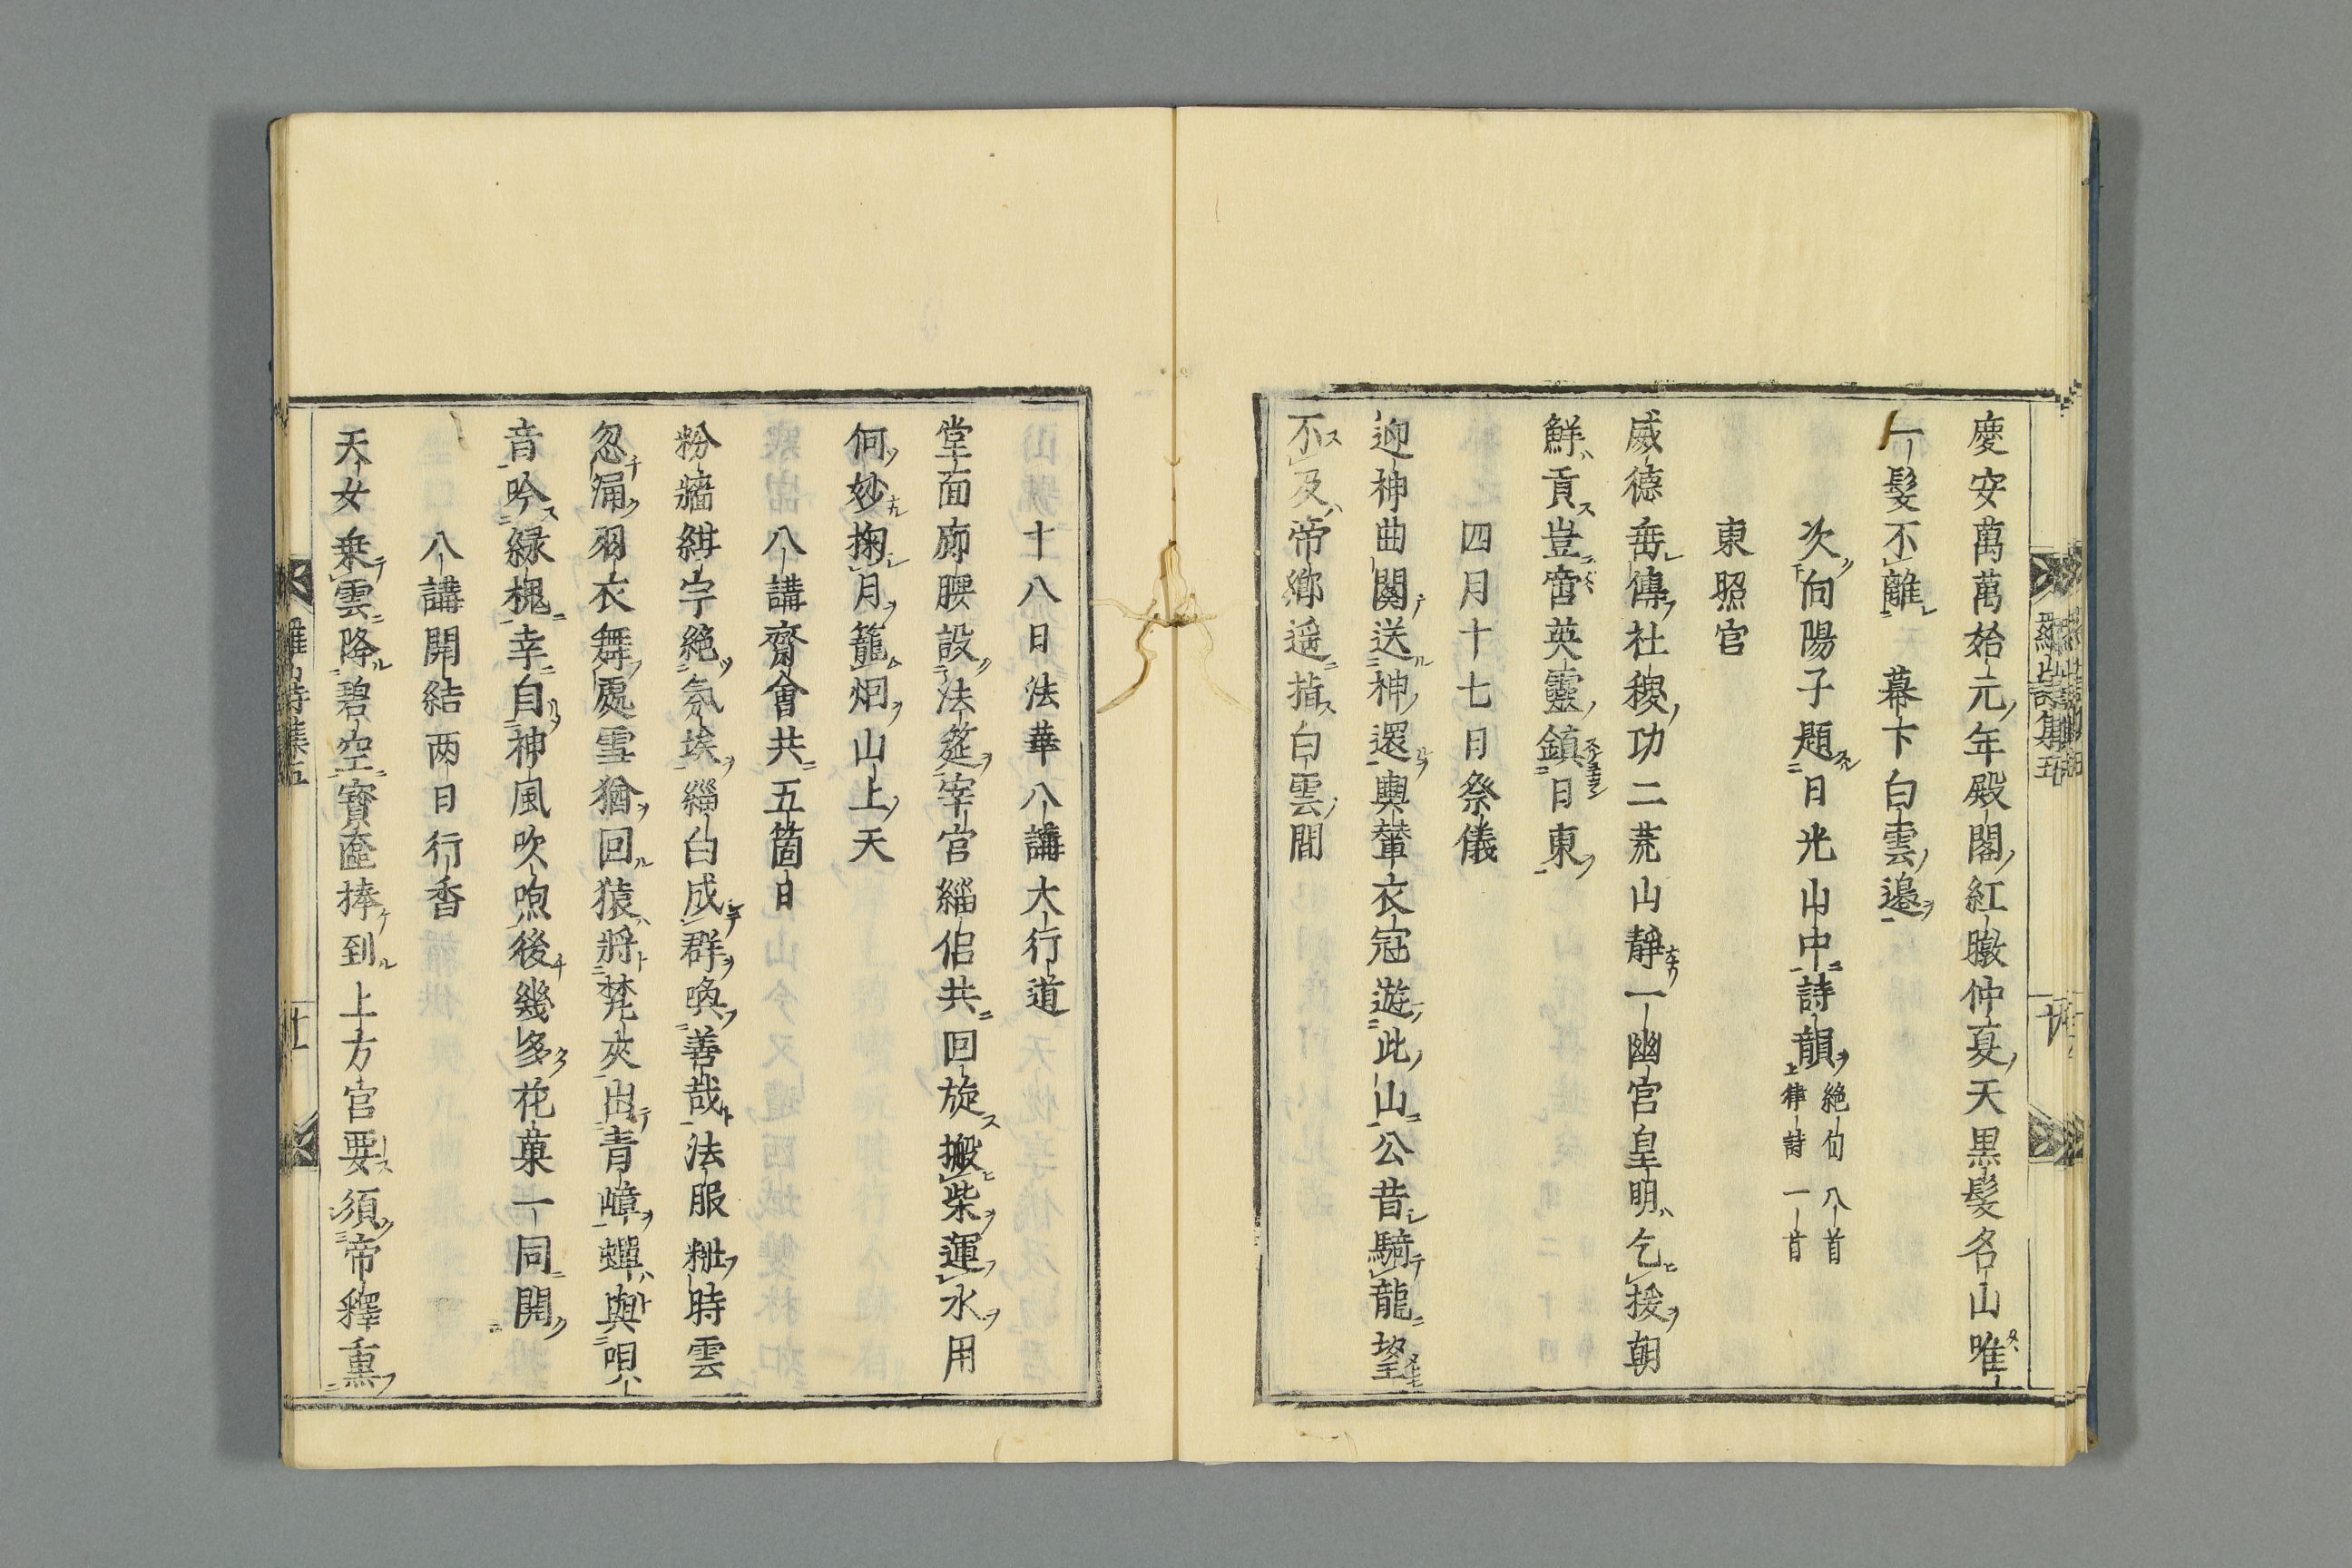 慶安萬萬始元年殿閣紅暾仲夏天黒髪名山唯
一髪不離　幕下白雲邉
次向陽子題日光山中詩韻　絶句八首
律詩一首
東照宮
威德垂傳社稷功二荒山靜一幽宮皇明乞援朝
鮮貢豈啻英靈鎮日東
四月十七日祭儀
迎神曲闋送神還輿輦衣冠遊此山公昔騎龍望
不及帝鄉遥指白雲間
十八日法華八講大行道
堂面廊腰設法筵宰官緇侶共回旋搬柴運水用
何妙掬月籠烟山上天
八講齋會共五箇日
粉牆紺宇絶氛埃緇白成群喚善哉法服粧時雲
忽涌羽衣舞處雪猶回猿將梵夾出青嶂蟬與唄
音吟緑槐幸自神風吹喣後幾多花菓一同開
八講開結两日行香
天女乗雲降碧空寳奩捧到上方宮要須帝釋熏
羅山詩集五